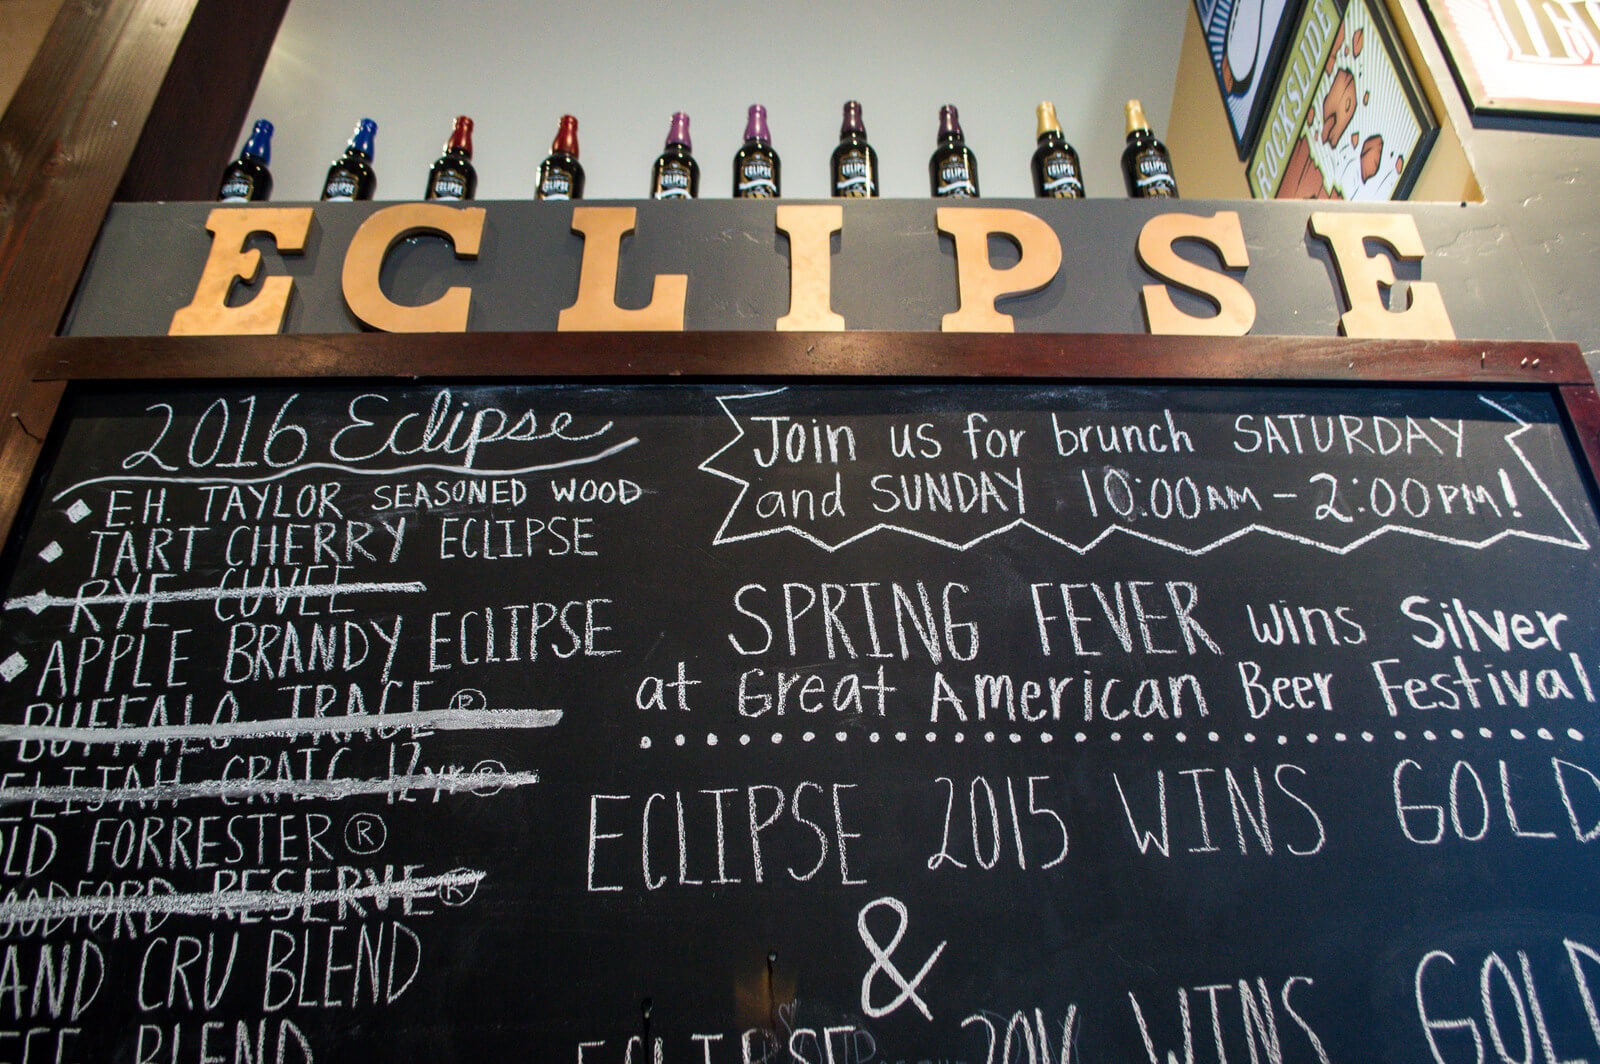 ROCKSLIDE
ECLIPSE
ECLIPSE
ECLIPSE
ECLIPSE
ECLIPSE
ECLIPSE
ECLIPSE
ECLIPSE
ECLIPSE
ECLIPSE
ECLIPSE
2016 Eclipse
E.H. TAYLOR SEASONED WOOD
TART CHERRY ECLIPSE
RYE CUVEE
APPLE BRANDY ECLIPSE
BUFFALO TRACE®
ELIJAH CRAIG 12yr®
OLD FORRESTER®
WOODFORD RESERVE®
AND CRU BLEND
BLEND
Join us for brunch SATURDAY
and SUNDAY 10:00AM - 2:00PM!
SPRING FEVER wins Silver
at Great American Beer Festival
ECLIPSE 2015 WINS GOLD
&
ECLIPSE 2014 WINS GOLD